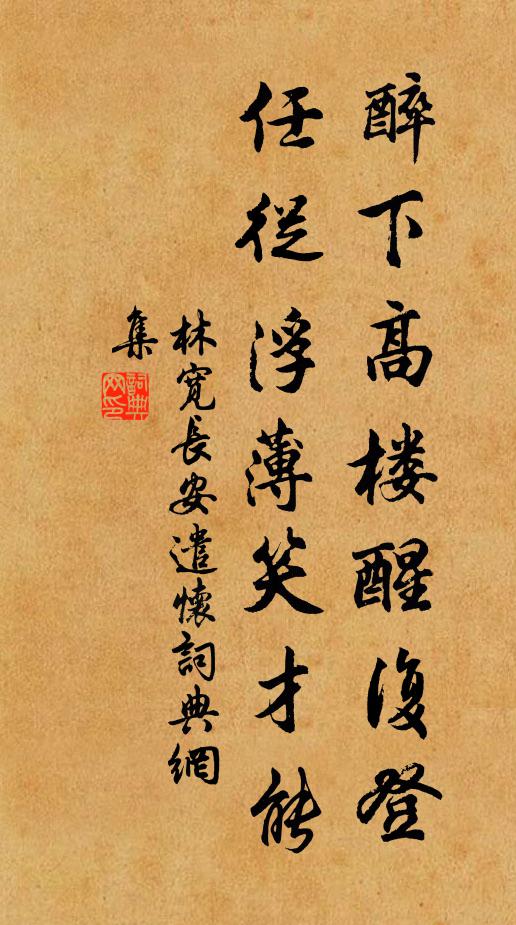 醉下高楼醒復登
任從浮薄笑才能
林寬長安遣懷詞典網
集
詞典網印